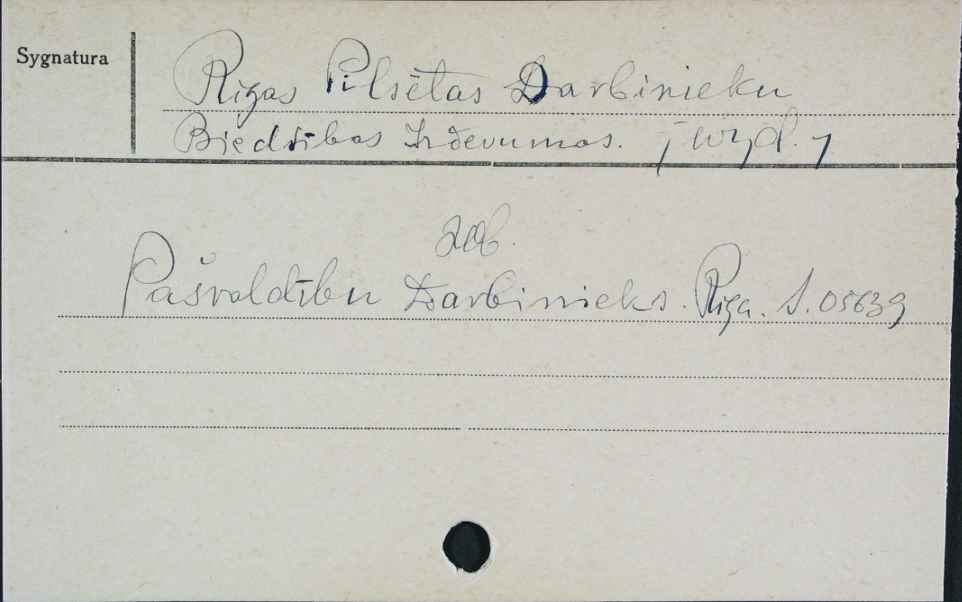 Sygnatura
Rīgas Pilsētas Darbinieku
Biedrības Izdevumos. /wyd./
zob.
Pašvaldību Darbinieks. Riga. S. 05639